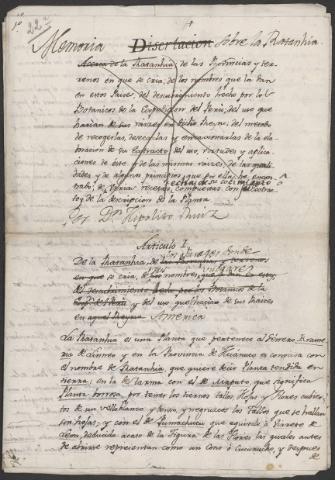 1º
Memoria Disertacion sobre la Ratanhia
Acerca de la Ratanhia, de las Provincias y ter-
renos en que se cria, de los nombres que la dan
en esos Paises, del descubrimiento hecho por los
Botanicos de la Expedicion del Perú, del uso que
hacian de sus raizes en dicho Reyno, del modo
de recogerlas, desecarlas y encaxonarlas, de la ela-
boracion de su Extracto, del uso, virtudes y aplica-
ciones de éste y de las mismas raizes, de las
y de algunos principios que
recetas compuestas con el Extrac-
to, y de la descripcion de la Planta.
Por Dn. Hipolito Ruiz
Articulo I.
De la Ratanhia, de
en que se cria, de los nombres,
del descubrimiento hecho por los Botanicos de la
Exp. del Perú y del uso que hacian de sus raices
en aquel Reyno. America
La Ratanhia es una Planta que pertenece al Género Krame-
ria de Linneo y en la Provincia de Huanuco es conocida con
el nombre de Ratanhia, que quiere decir Planta tendida en
tierra; en la de Tarma con el de Mapato, que significa
Planta borrosa, por tener los tiernos tallos, Hojas y Flores cubier-
tos de un vello blanco y denso, y negruzcos los Tallos que se hallan
sin hojas, y con el de Pumachucu que equivale á Birrete de
Leon, deducido acaso de la Figura de las Flores las quales antes
de abrirse representan como un Cono ó Cucurucho, y despues
de